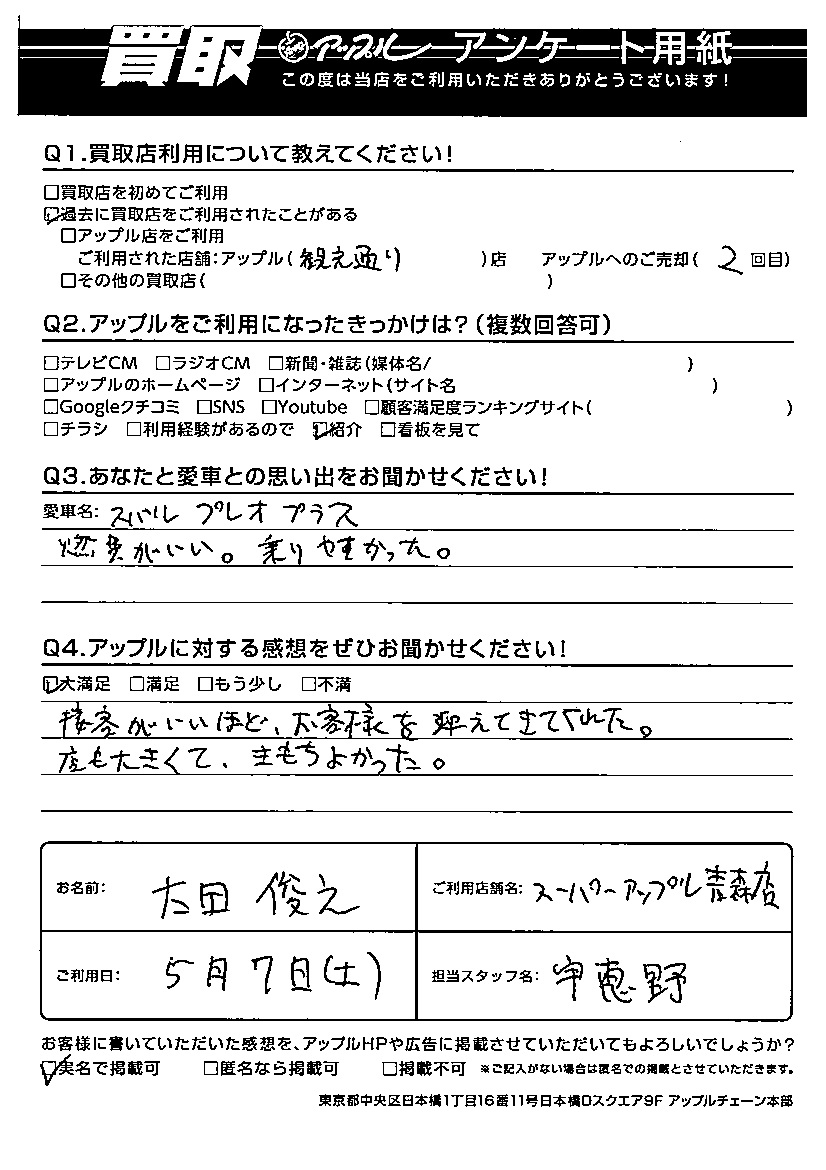 買取 アップル アンケート用紙
この度は当店をご利用いただきありがとうございます!
Q1.買取店利用について教えてください!
□買取店を初めてご利用
☑過去に買取店をご利用されたことがある
□アップル店をご利用
ご利用された店舗:アップル(観光通り )店 アップルへのご売却( 2 回目)
□その他の買取店( )
Q2.アップルをご利用になったきっかけは?(複数回答可)
□テレビCM □ラジオCM □新聞・雑誌(媒体名/ )
□アップルのホームページ □インターネット(サイト名 )
□Googleクチコミ □SNS □Youtube □顧客満足度ランキングサイト( )
□チラシ □利用経験があるので ☑紹介 □看板を見て
Q3.あなたと愛車との思い出をお聞かせください!
愛車名: スバル プレオ プラス
燃費がいい。乗りやすかった。
Q4.アップルに対する感想をぜひお聞かせください!
☑大満足 □満足 □もう少し □不満
接客がいいほど、お客様を迎えてきてくれた。
店も大きくて、きもちよかった。
お名前: 太田 俊之
ご利用店舗名: スーパーアップル青森店
ご利用日: 5月7日(土)
担当スタッフ名: 宇恵野
お客様に書いていただいた感想を、アップルHPや広告に掲載させていただいてもよろしいでしょうか?
☑実名で掲載可 □匿名なら掲載可 □掲載不可 ※ご記入がない場合は匿名での掲載とさせていただきます。
東京都中央区日本橋1丁目16番11号日本橋Dスクエア9F アップルチェーン本部